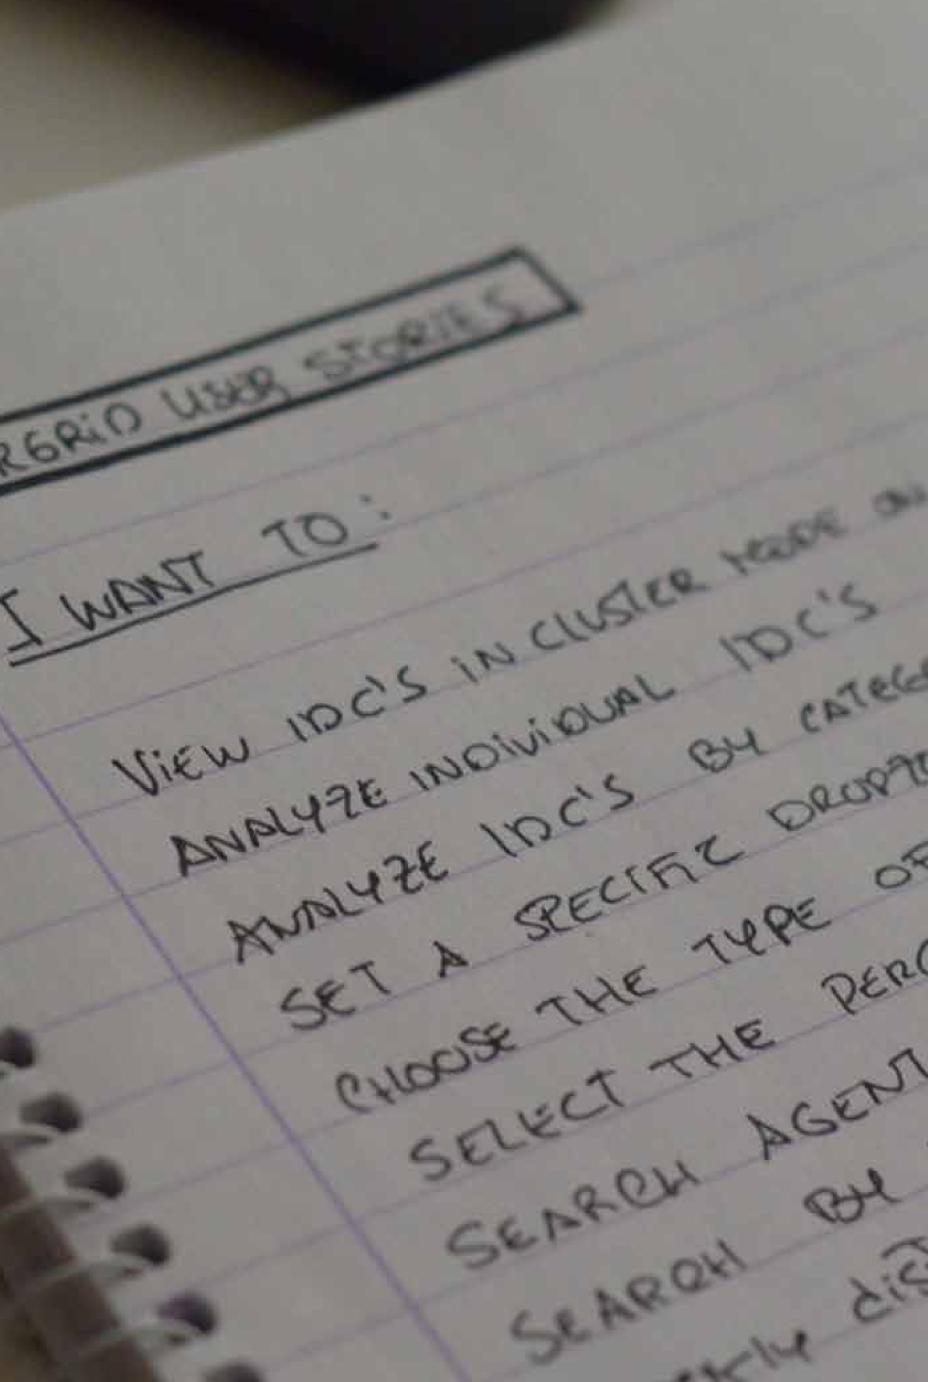 RGRID USER STORIES
I WANT TO:
VIEW IDC'S IN CLUSTER MODE ON
ANALYZE INDIVIDUAL IDC'S
ANALYZE IDC'S BY CATEGO
SET A SPECIFIC
CHOOSE THE TYPE OF
SELECT THE PERC
SEARCH AGENT
SEARCH BY